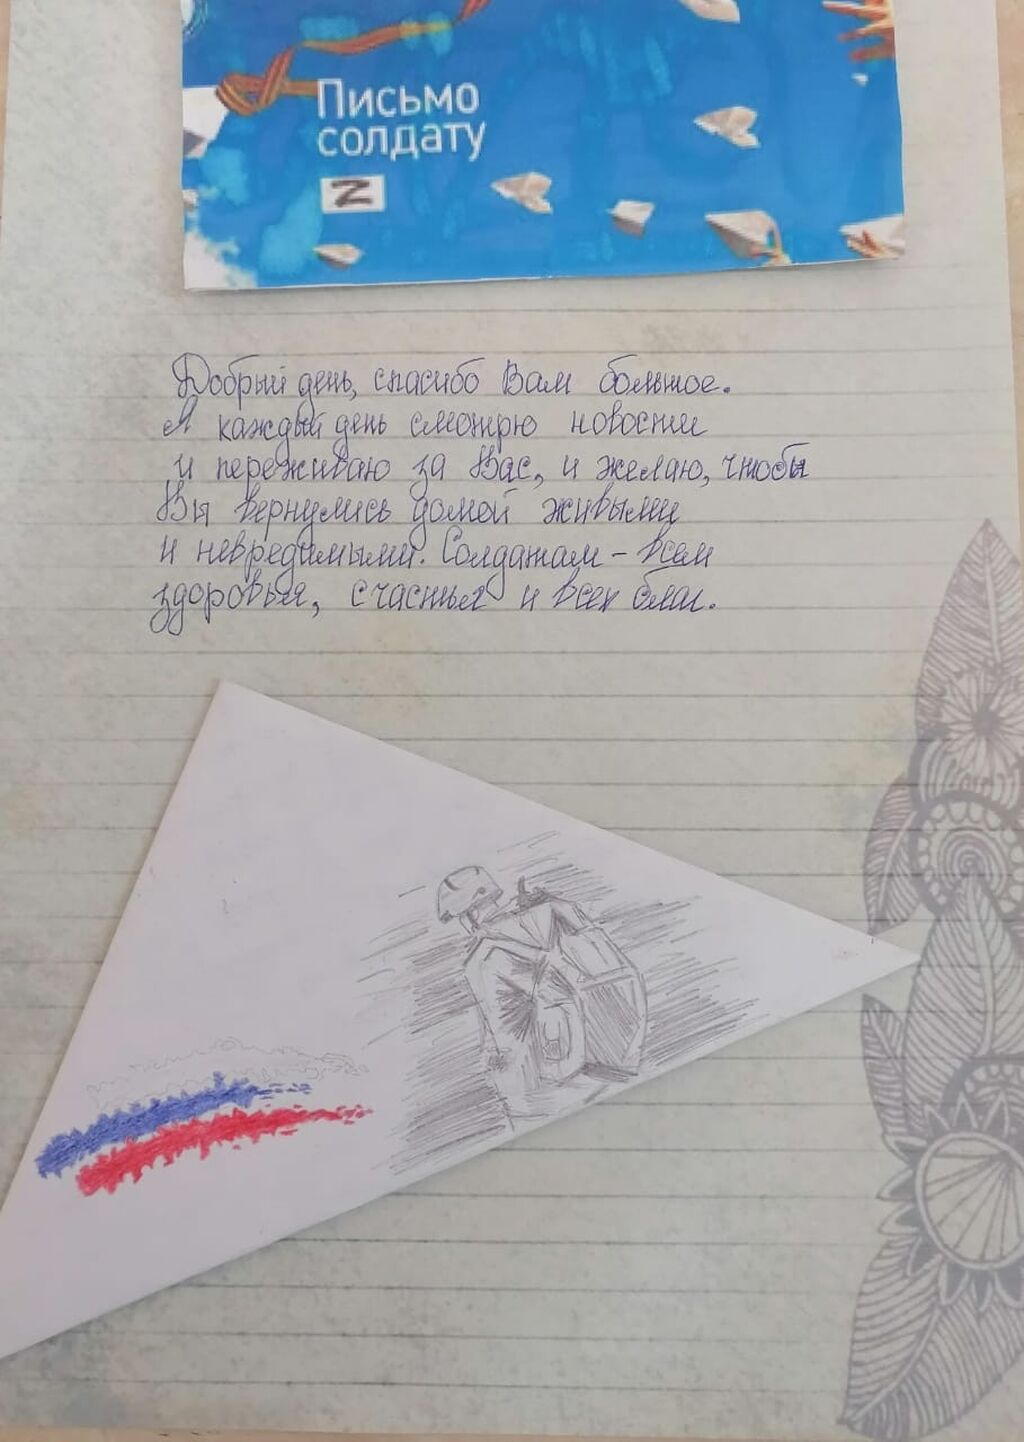 Письмо
солдату
Z
Добрый день, спасибо Вам большое.
Я каждый день смотрю новости
и переживаю за Вас, и желаю, чтобы
Вы вернулись домой живыми
и невредимыми. Солдатам - всем
здоровья, счастья и всех благ.